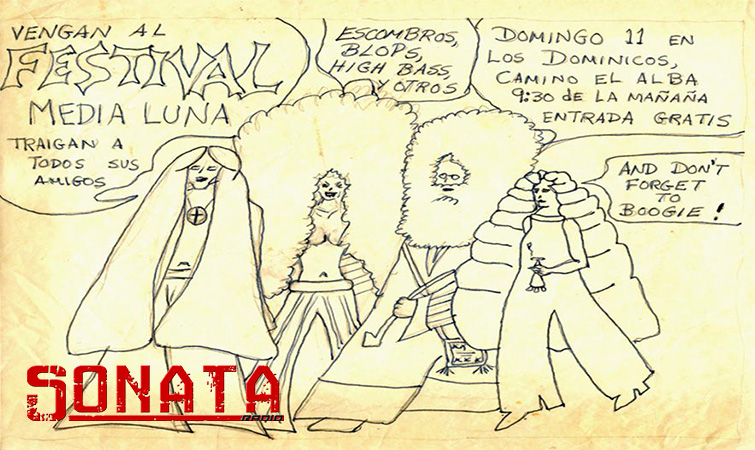 VENGAN AL
FESTIVAL
MEDIA LUNA
TRAIGAN A
TODOS SUS
AMIGOS
ESCOMBROS,
BLOPS,
HIGH BASS,
Y OTROS
DOMINGO 11 EN
LOS DOMINICOS,
CAMINO EL ALBA
9:30 de LA MAÑAÑA
ENTRADA GRATIS
AND DON'T
FORGET
TO
BOOGIE!
SONATA
RADIO